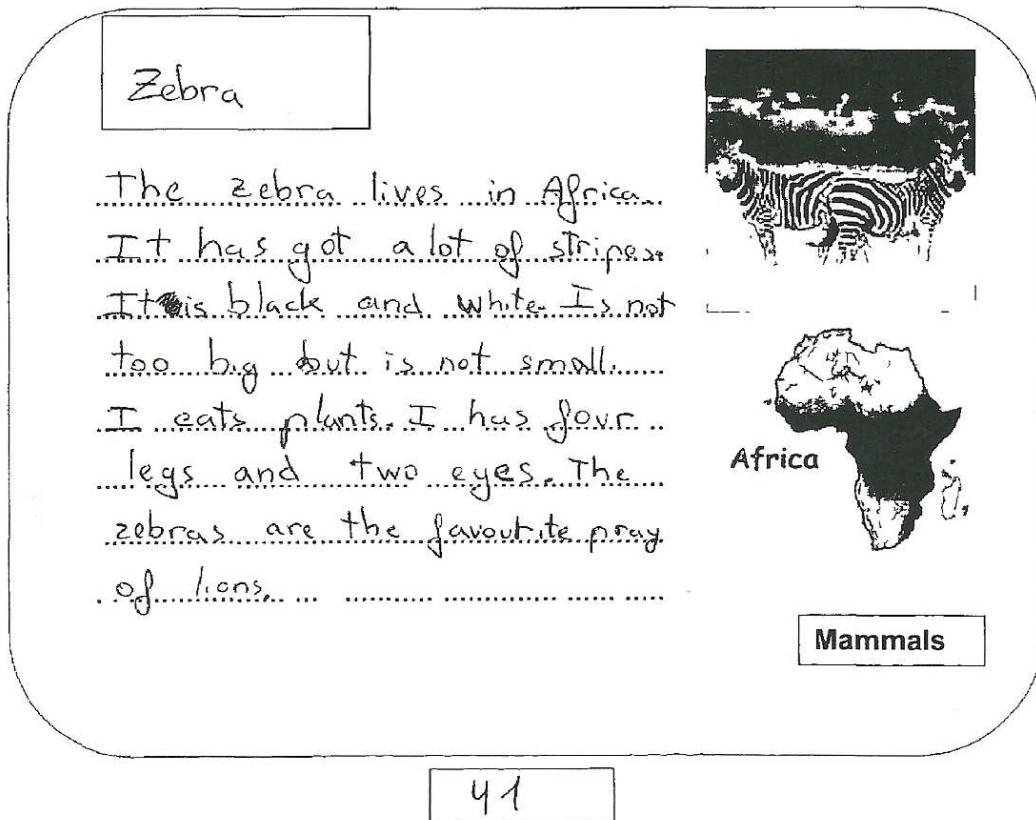 Zebra
The zebra lives in Africa.
It has got a lot of stripes.
It is black and white. Is not
too big but is not small.
I eats plants. I has four
legs and two eyes. The
zebras are the favourite pray
of lions.
Africa
Mammals
41